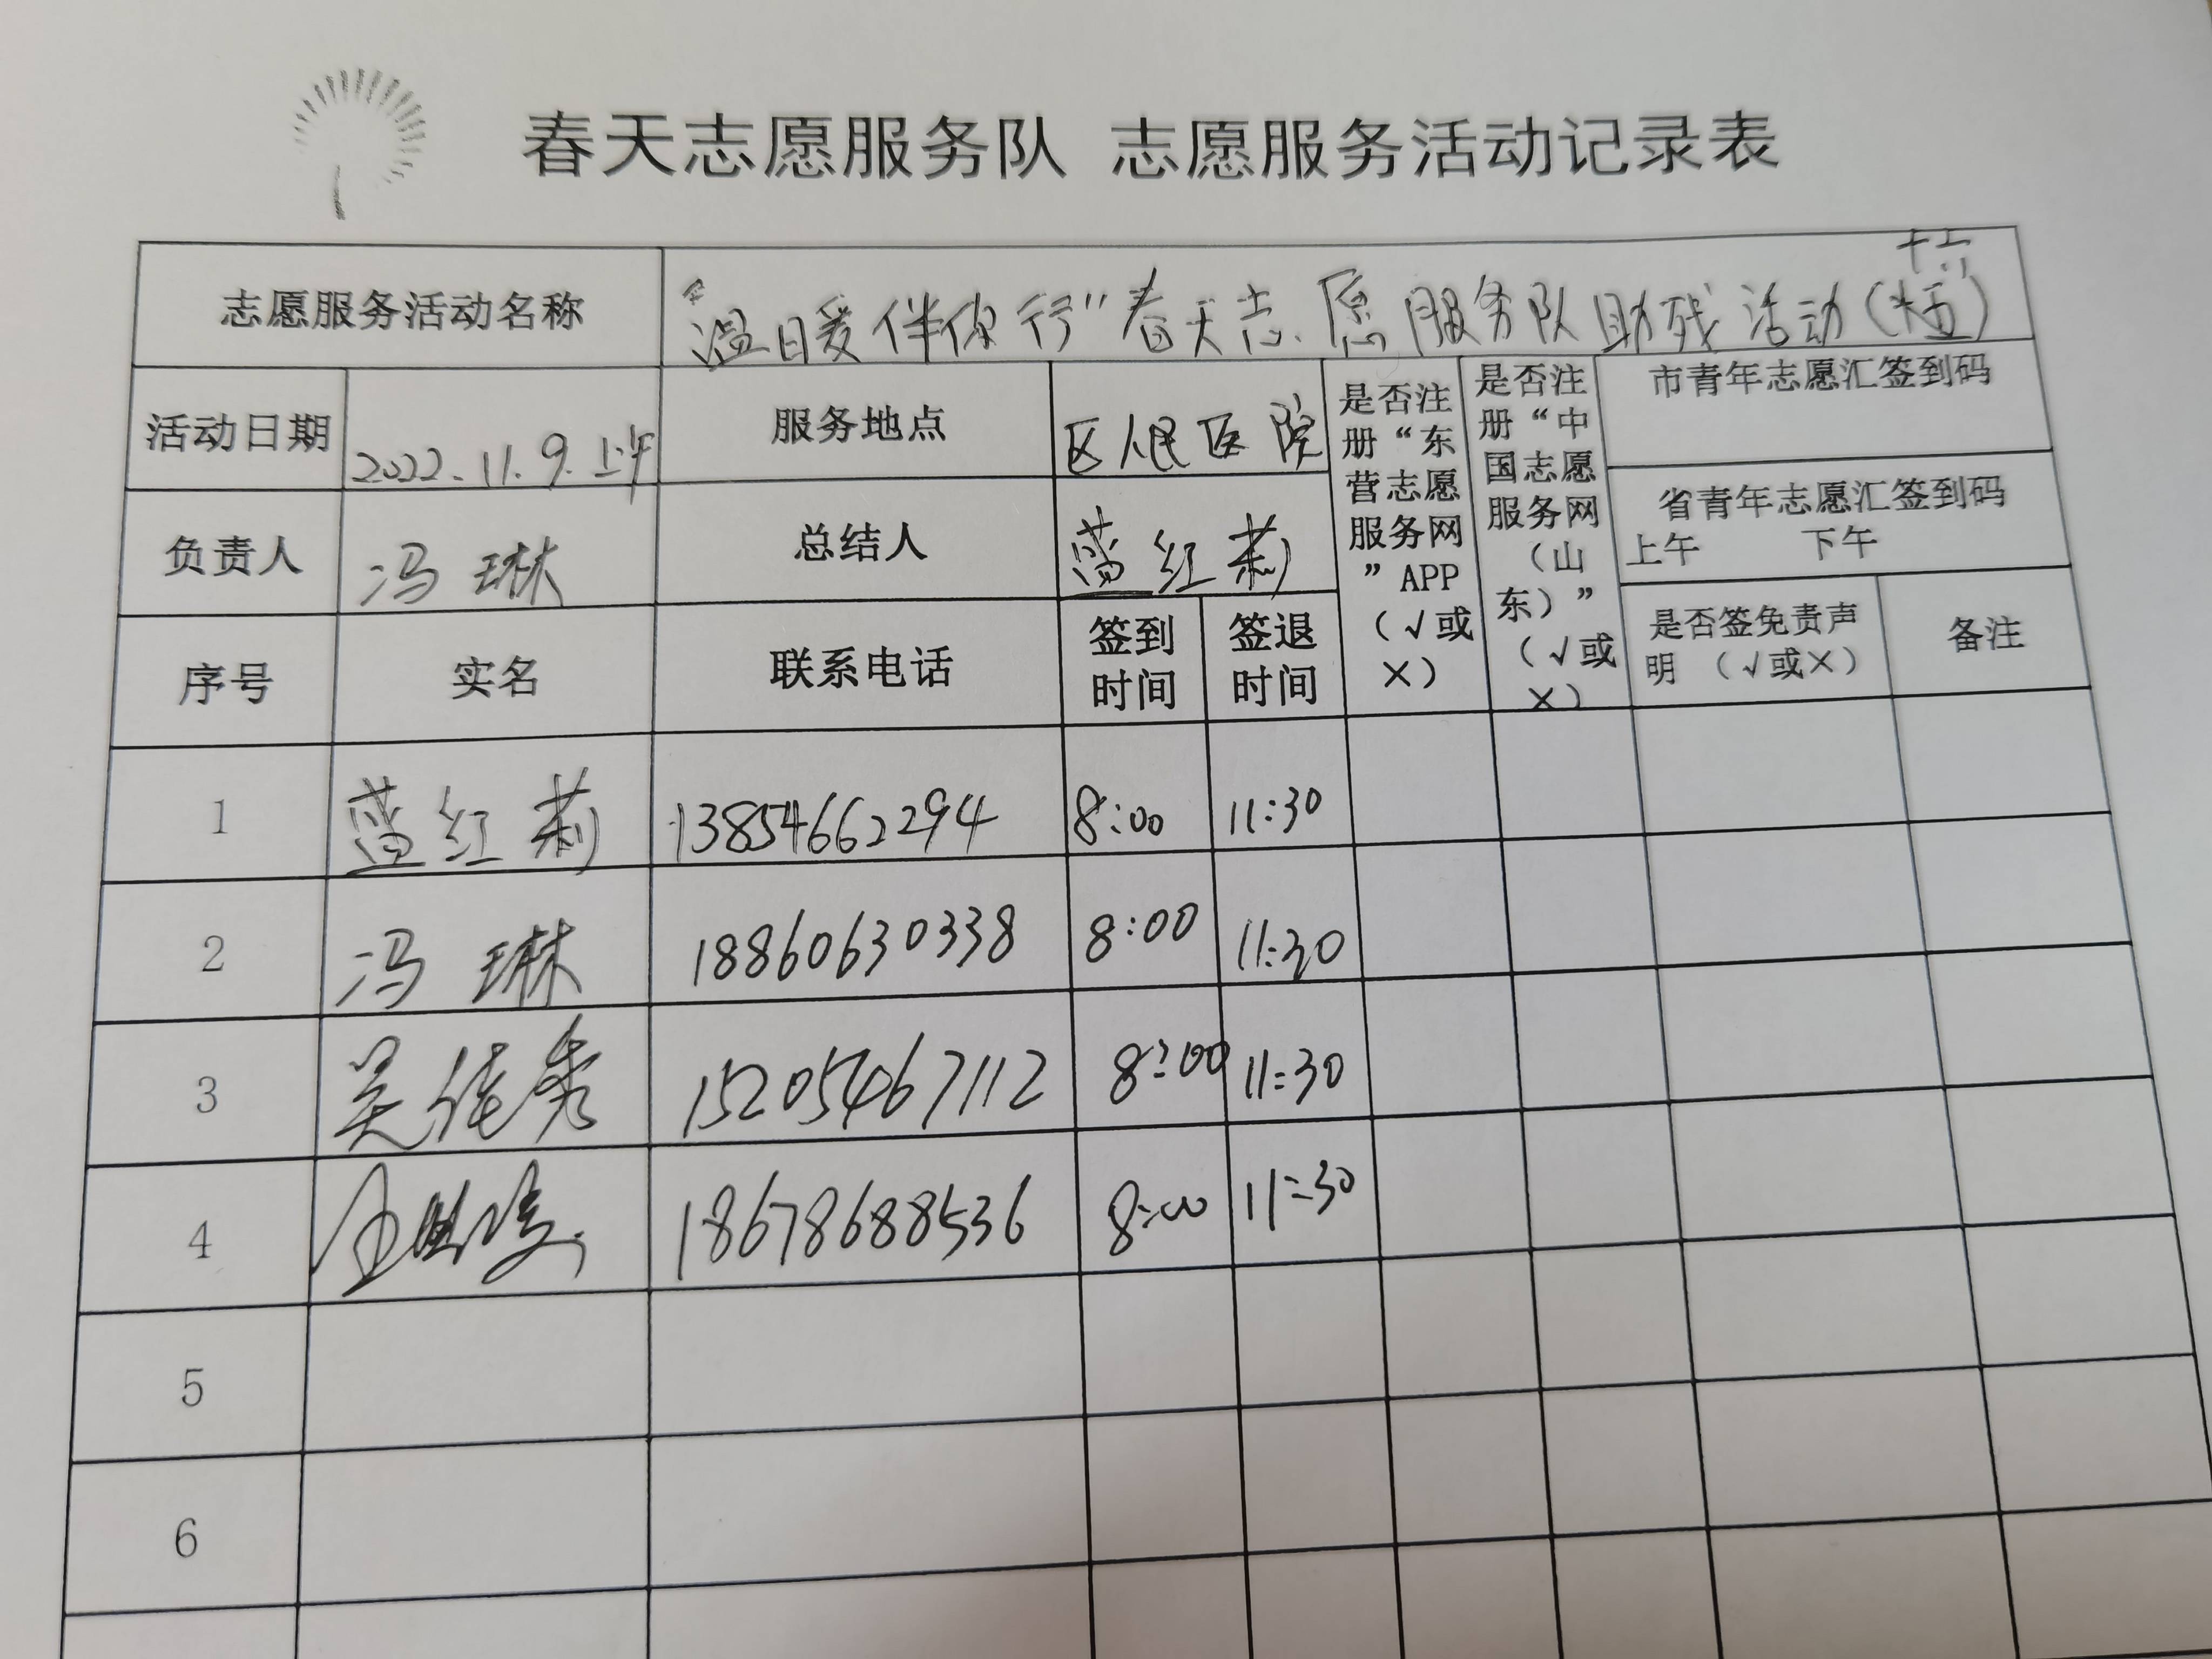 春天志愿服务队 志愿服务活动记录表
十六
志愿服务活动名称 “温暖伴你行”春天志愿服务队助残活动()
活动日期 2022.11.9.上午 服务地点 区人民医院 是否注册“东营志愿服务网”APP（√或×） 是否注册“中国志愿服务网（山东）”（√或×） 市青年志愿汇签到码
省青年志愿汇签到码
上午 下午
负责人 冯琳 总结人 蓝红莉
序号 实名 联系电话 签到时间 签退时间 是否签免责声明（√或×） 备注
1 蓝红莉 13854662294 8:00 11:30
2 冯琳 18860630338 8:00 11:30
3 吴佳秀 15205467112 8:00 11:30
4 18678688536 8:00 11:30
5
6